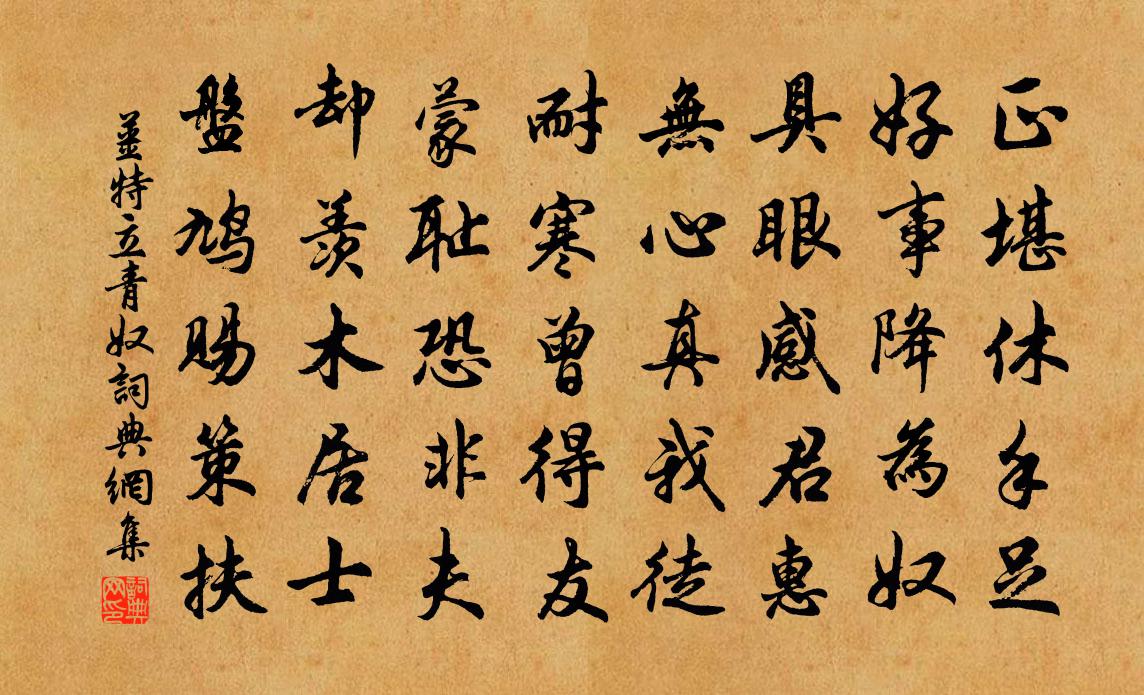 正堪休手足
好事降為奴
具眼感君惠
無心真我徒
耐寒曾得友
蒙恥恐非夫
却羨木居士
盤鳩賜策扶
姜特立青奴詞典網集
詞典网印